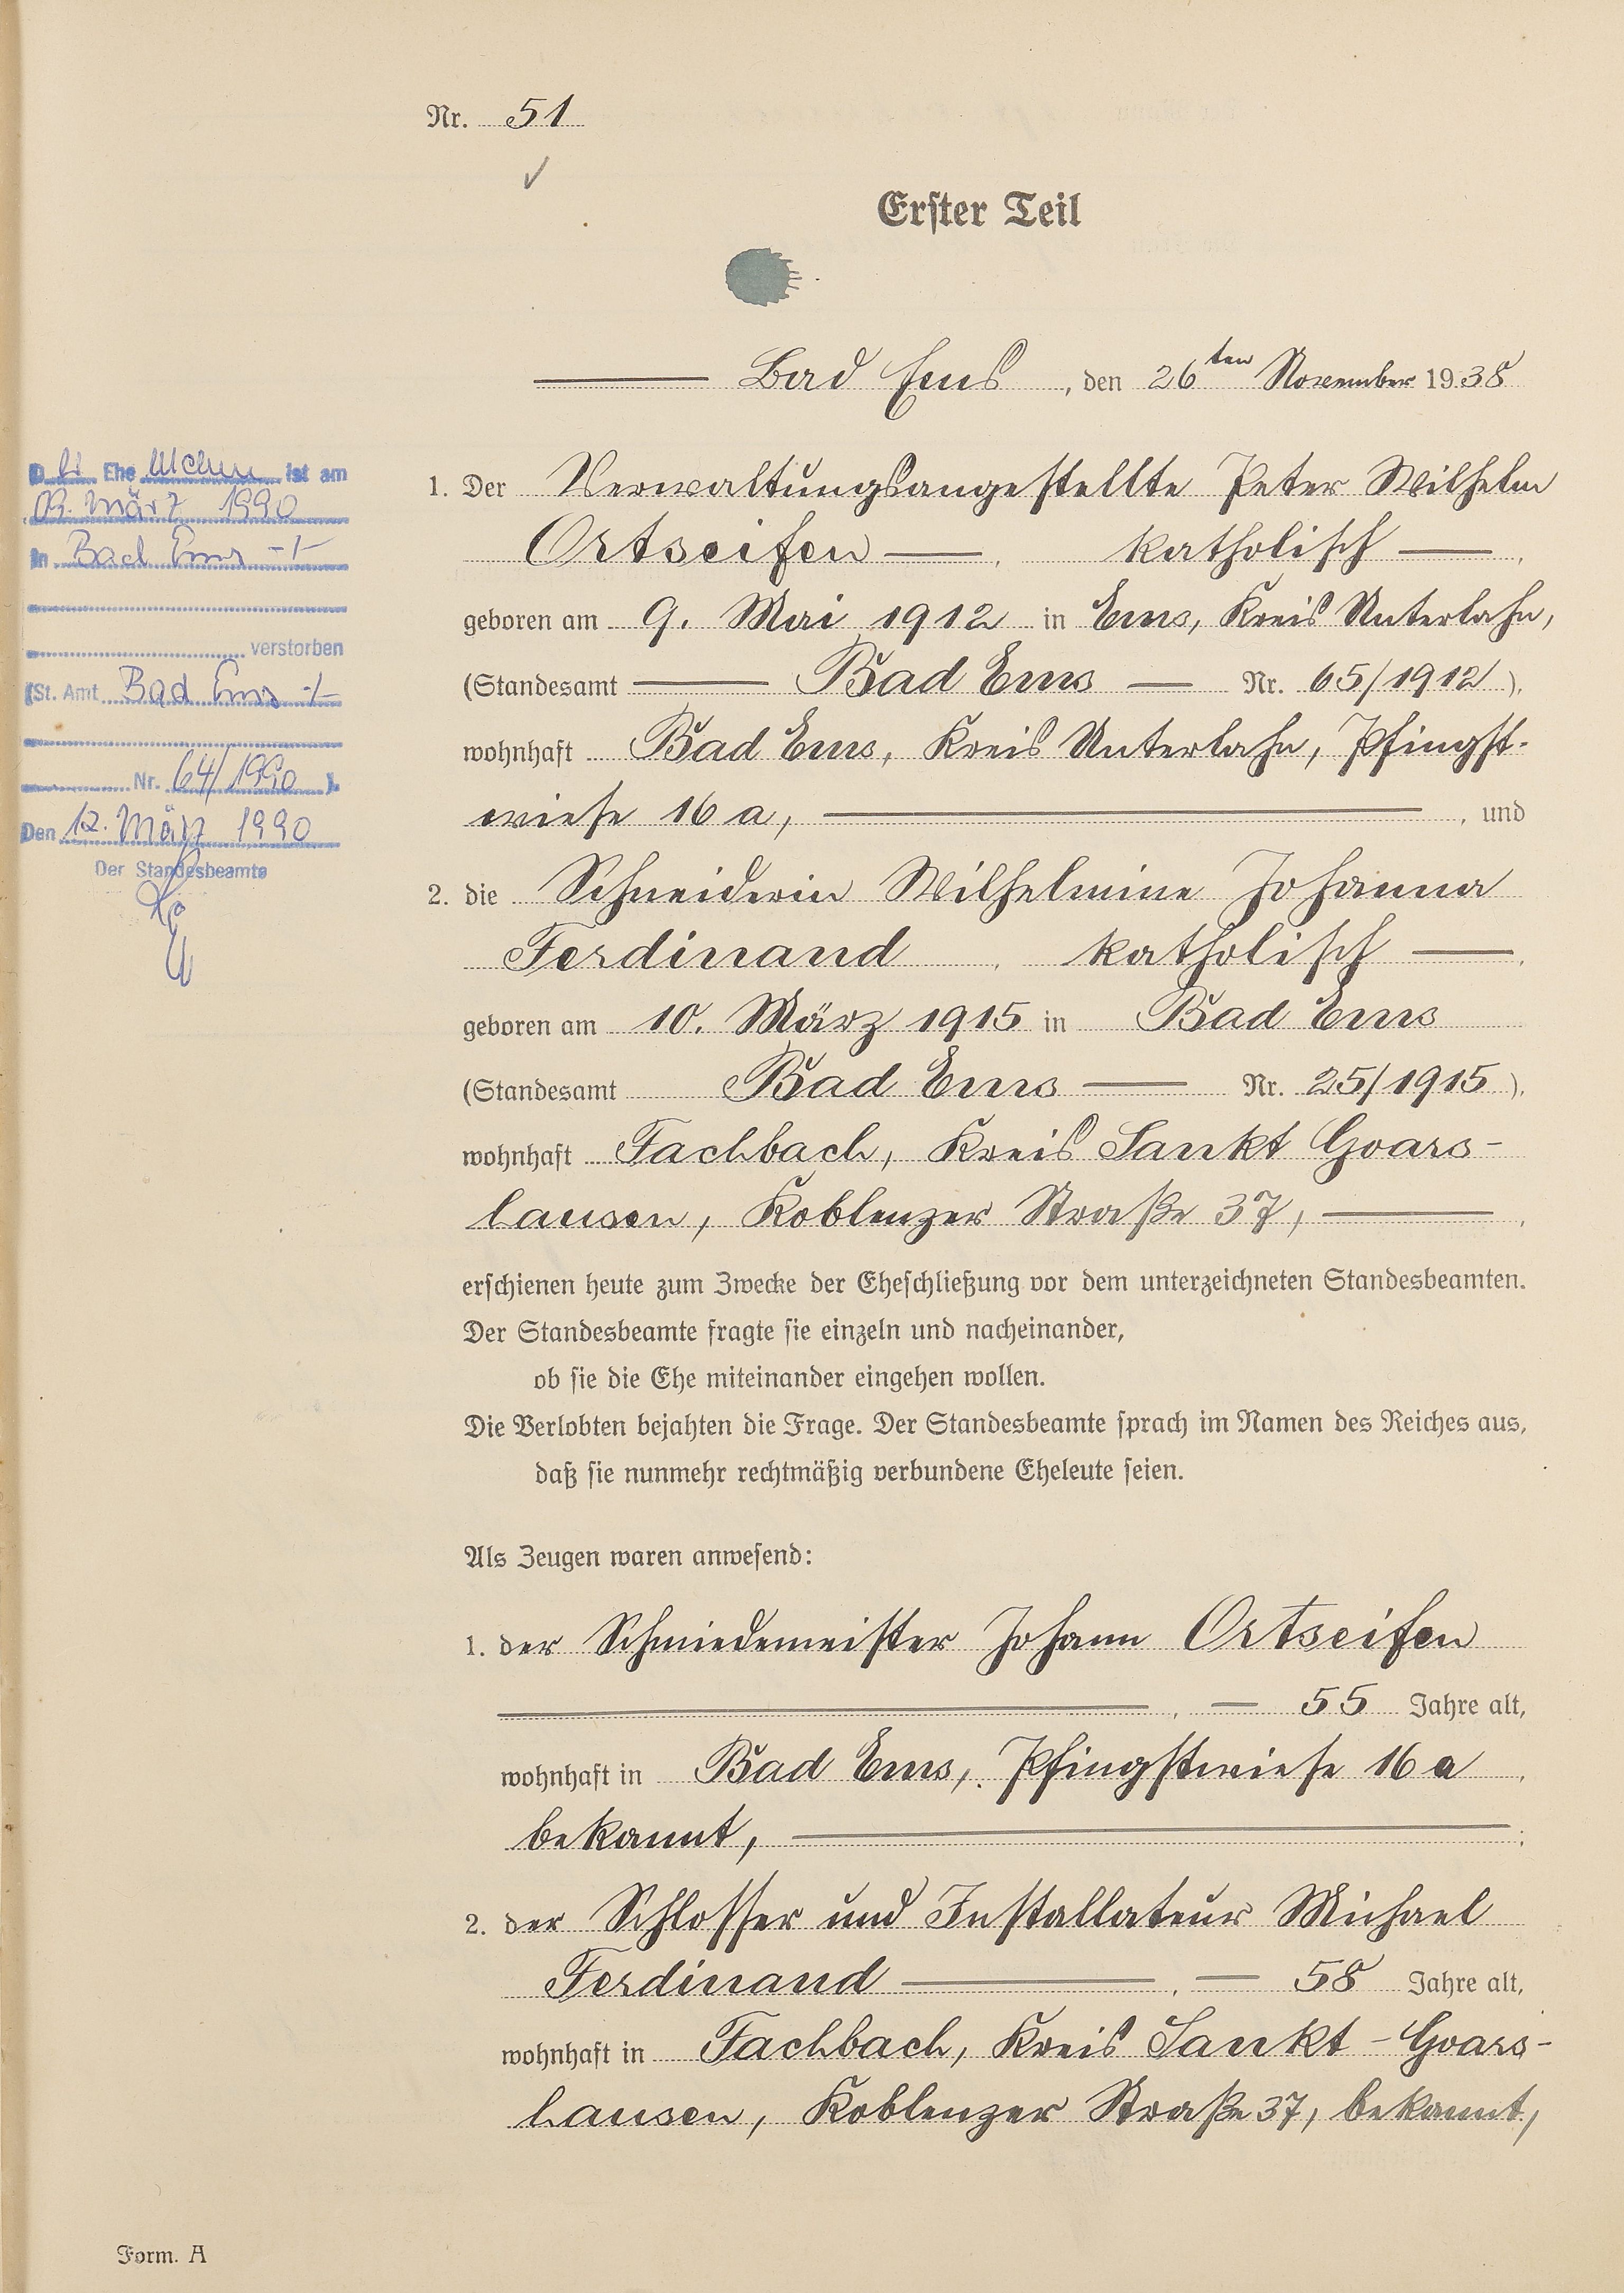 Nr. 51
✓
Erster Teil
Bad Ems, den 26ten November 1938
1. Der Verwaltungsangestellte Peter Wilhelm
Ortseifen, katholisch,
geboren am 9. Mai 1912 in Ems, Kreis Unterlahn,
(Standesamt Bad Ems Nr. 65/1912),
wohnhaft Bad Ems, Kreis Unterlahn, Pfingst-
wiese 16 a, , und
2. die Schneiderin Wilhelmine Johanna
Ferdinand, katholisch,
geboren am 10. März 1915 in Bad Ems
(Standesamt Bad Ems Nr. 25/1915),
wohnhaft Fachbach, Kreis Sankt Goars-
hausen, Koblenzer Straße 37,
erschienen heute zum Zwecke der Eheschließung vor dem unterzeichneten Standesbeamten.
Der Standesbeamte fragte sie einzeln und nacheinander,
ob sie die Ehe miteinander eingehen wollen.
Die Verlobten bejahten die Frage. Der Standesbeamte sprach im Namen des Reiches aus,
daß sie nunmehr rechtmäßig verbundene Eheleute seien.
Als Zeugen waren anwesend:
1. der Schmiedemeister Johann Ortseifen
, 55 Jahre alt,
wohnhaft in Bad Ems, Pfingstwiese 16 a,
bekannt, ;
2. der Schlosser und Installateur Michael
Ferdinand, 58 Jahre alt,
wohnhaft in Fachbach, Kreis Sankt-Goars-
hausen, Koblenzer Straße 37, bekannt,
Ehe ist am
09. März 1990
in Bad Ems -/-
verstorben
(St. Amt Bad Ems -/-
Nr. 64/1990 ).
Den 12. März 1990
Der Standesbeamte
Form. A